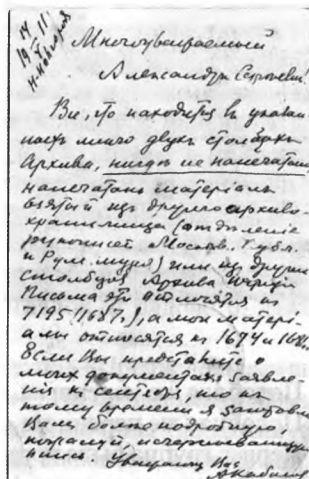 19 14/V 11
Н-Новгород
Многоуважаемый
Александр Сергеевич!
Все, что находится в указан-
ных мною двух столбцах
Архива, нигде не напечатано,
напечатан матерiал
взятый из другого архиво-
хранилища (отделенiе
рукописей Москов. Публ.
и Рум. музея) или из других
столбцов Архива
Письма эти относятся к
7195 (1687 г.), а мои матерi-
алы относятся к 1674 и 1681
Если Вы представите о
моих документах заявле-
нiя к сентябрю, то к
тому времени я заготовлю
Вам более подробную,
пожалуй, исчерпывающую
опись. Уважающий Вас